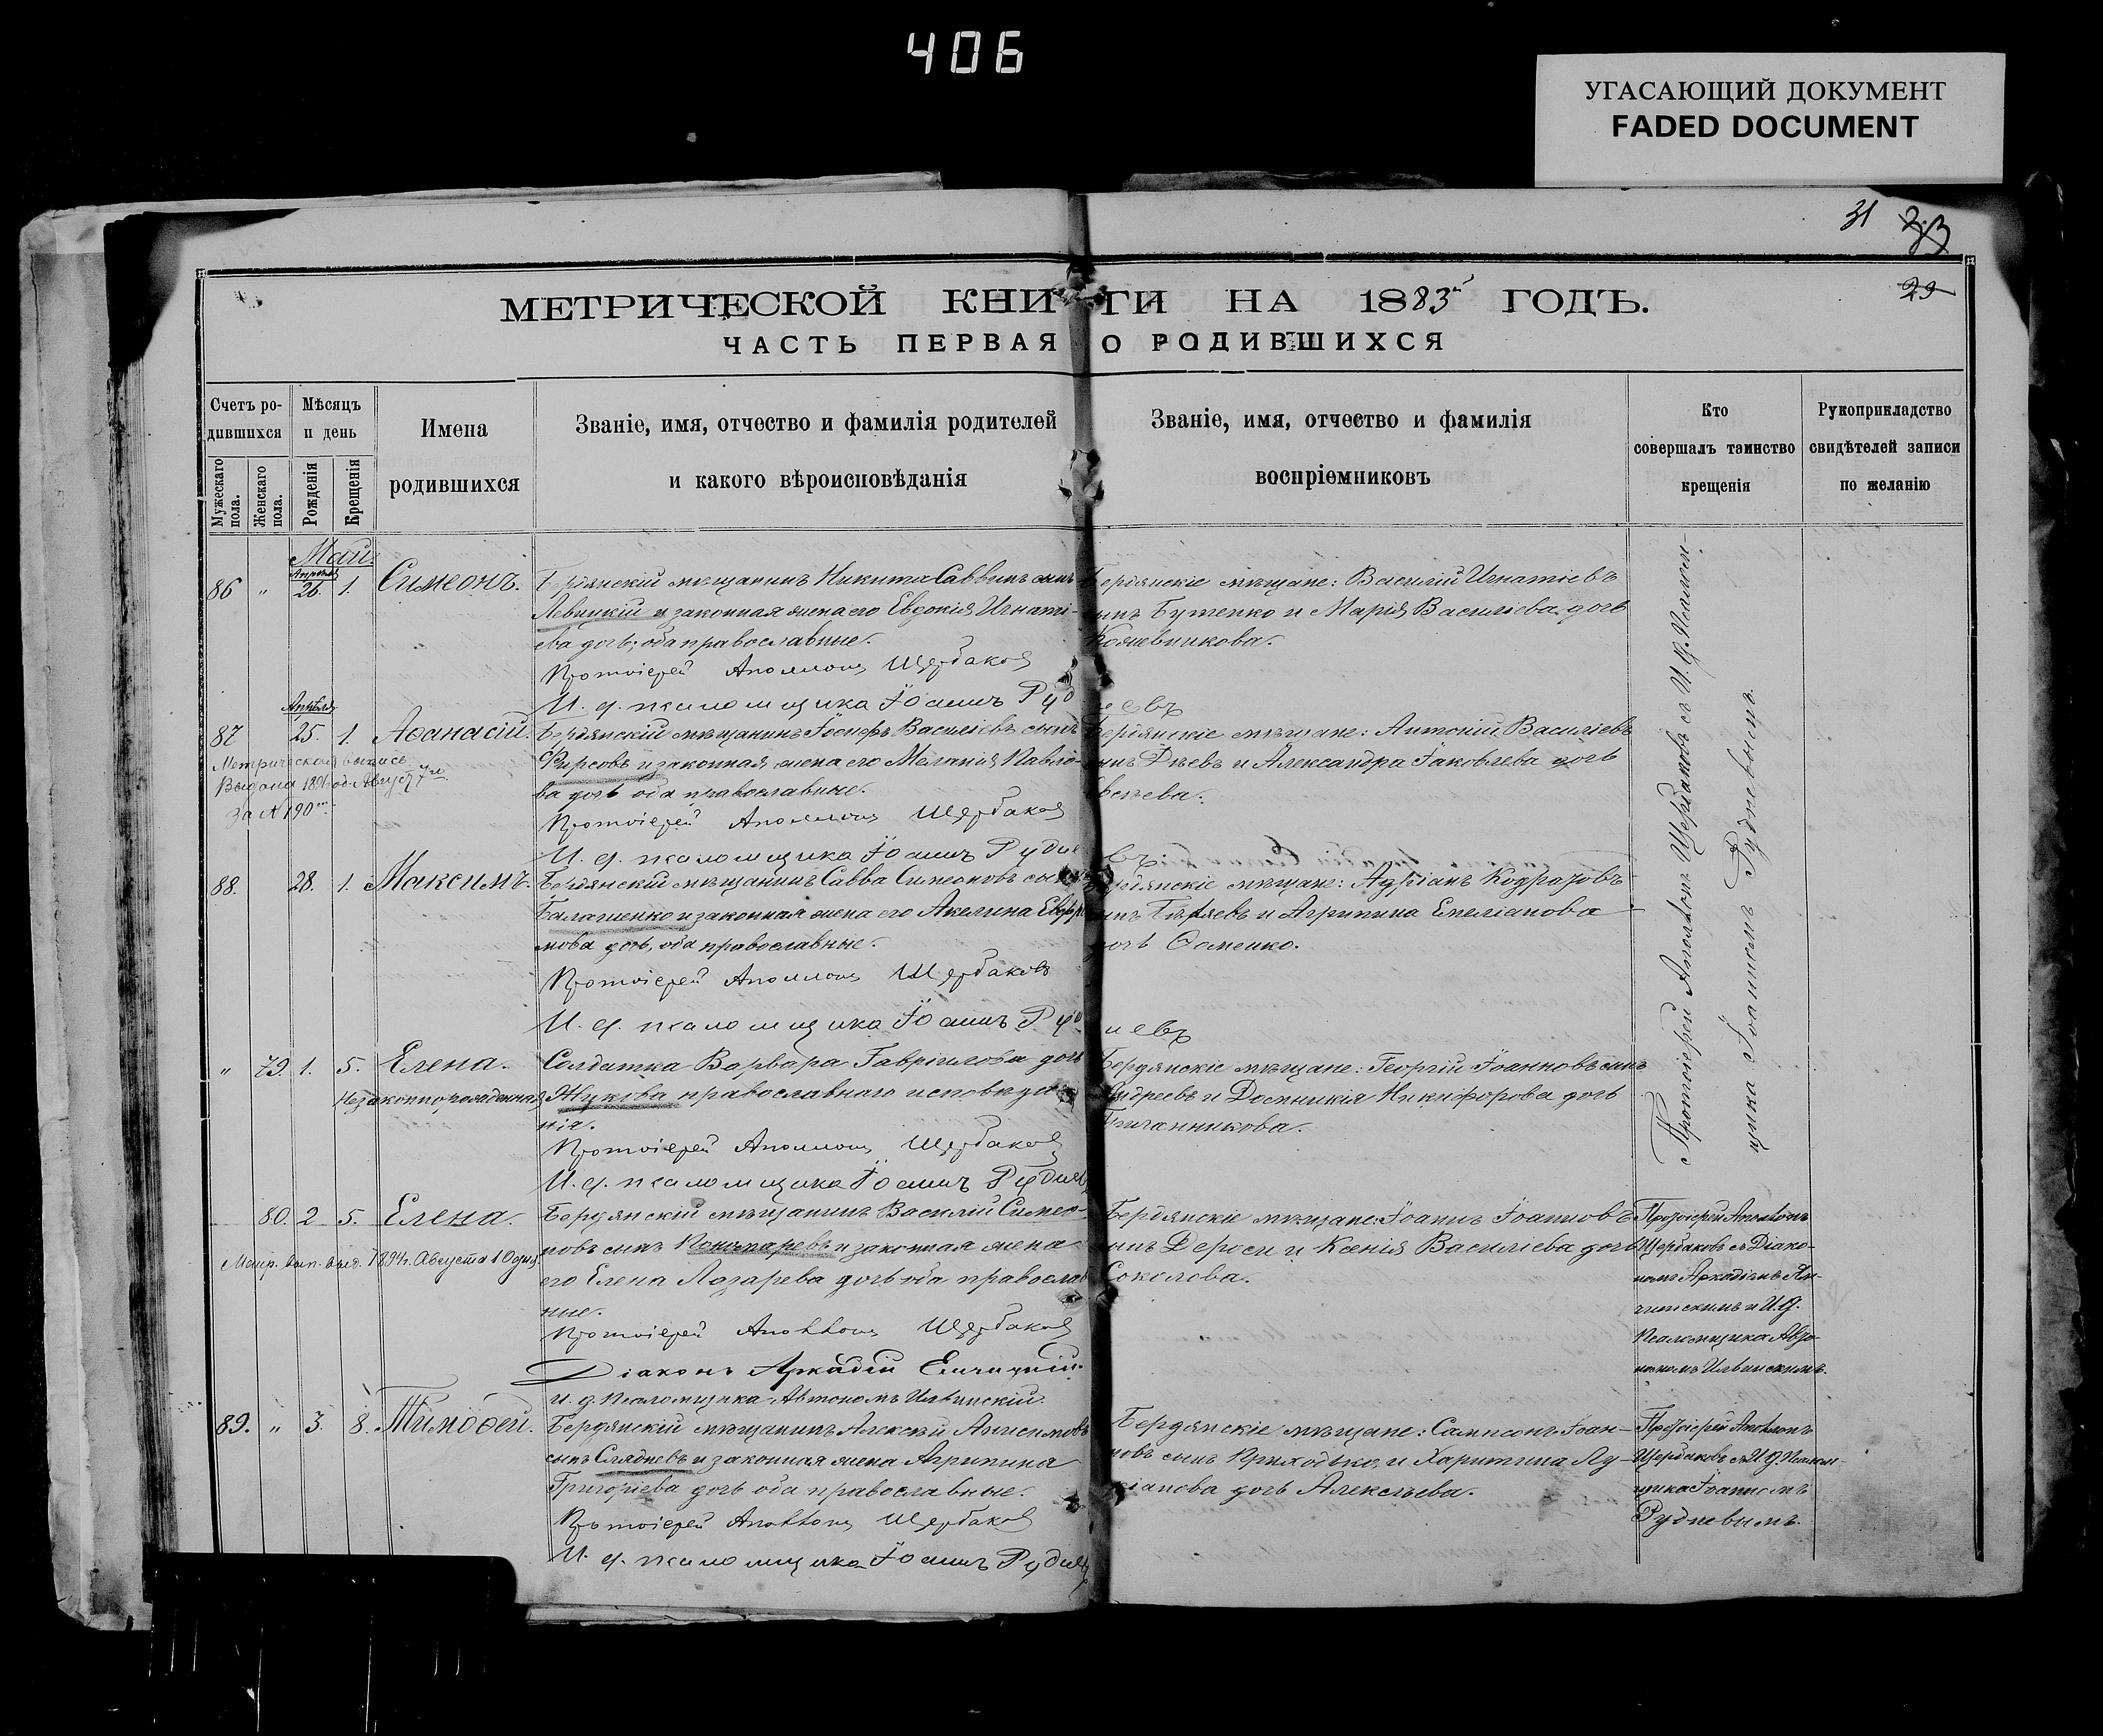 406
УГАСАЮЩИЙ ДОКУМЕНТ
FADED DOCUMENT
31
29
МЕТРИЧЕСКОЙ КНИГИ НА 1883 ГОДЪ.
ЧАСТЬ ПЕРВАЯ О РОДИВШИХСЯ
Счетъ родившихся
Мужескаго пола.
Женскаго пола.
Мѣсяцъ и день
Рожденія
Крещенія
Имена родившихся
Званіе, имя, отчество и фамилія родителей
и какого вѣроисповѣданія
Званіе, имя, отчество и фамилія
воспріемниковъ
Кто
совершалъ таинство
крещенія
Рукоприкладство
свидѣтелей записи
по желанію
Май.
Апрѣля
86 " 26. 1. Симеонъ.
Бердянскій мѣщанинъ Никита Саввинъ сынъ
Левицкій и законная жена его Евдокія Игнаті-
ева дочь; оба православные.
Протоіерей Аполлонъ Щербаковъ
И. д. псаломщика Іоаннъ Рудневъ
Бердянскіе мѣщане: Василій Игнатіевъ
сынъ Бутенко и Марія Василіева дочь
Кожевникова.
Протоіерей Аполлонъ Щербаковъ съ И. д. Псалом-
щика Іоанномъ Рудневымъ.
Апрѣля
87 25. 1. Аѳанасій.
Метрическая выпись
Выдана
За № 190
Бердянскій мѣщанинъ Іосифъ Василіевъ сынъ
Фирсовъ и законная жена его Меланія Павло-
ва дочь оба православные.
Протоіерей Аполлонъ Щербаковъ
И. д. псаломщика Іоаннъ Рудневъ
Бердянскіе мѣщане: Антоній Василіевъ
сынъ и Александра Іаковлева дочь
88. 28. 1. Максимъ.
Бердянскій мѣщанинъ Савва Симеоновъ сынъ
Балашенко и законная жена его Акелина
дочь, оба православные.
Протоіерей Аполлонъ Щербаковъ
И. д. псаломщика Іоаннъ Рудневъ
Бердянскіе мѣщане: Адріанъ
сынъ и Агрипина Емеліанова
дочь
" 79. 1. 5. Елена.
Незаконнорожденная
Солдатка Варвара Гавріилова дочь
Жукова православнаго исповѣда-
нія.
Протоіерей Аполлонъ Щербаковъ
И. д. псаломщика Іоаннъ Рудневъ
Бердянскіе мѣщане: Георгій Іоанновъ сынъ
Андреевъ и Домникія Никифорова дочь
80. 2 5. Елена.
Метр. вып. выд. 1894 г. Августа 10 дня.
Бердянскій мѣщанинъ Василій Симео-
новъ сынъ Пономаревъ и законная жена
его Елена Лазарева дочь оба православ-
ные.
Протоіерей Аполлонъ Щербаковъ
Діаконъ Аркадій
И. д. Псаломщика Автономъ Ильвинскій.
Бердянскіе мѣщане: Іоаннъ Іоанновъ
сынъ Дероси и Ксенія Василіева дочь
Соколова.
Протоіерей Аполлонъ
Щербаковъ съ Діако-
номъ Аркадіемъ
и И. д.
Псаломщика Авто-
номомъ Ильвинскимъ.
89. " 3. 8. Тимоѳей.
Бердянскій мѣщанинъ Алексѣй Анисимовъ
сынъ Слядневъ и законная жена Агрипина
Григоріева дочь оба православные.
Протоіерей Аполлонъ Щербаковъ
И. д. псаломщика Іоаннъ Рудневъ
Бердянскіе мѣщане: Сампсонъ Іоан-
новъ сынъ Приходько, и Харитина Лу-
кіанова дочь Алексѣева.
Протоіерей Аполлонъ
Щербаковъ съ И. д. Псалом-
щика Іоанномъ
Рудневымъ.